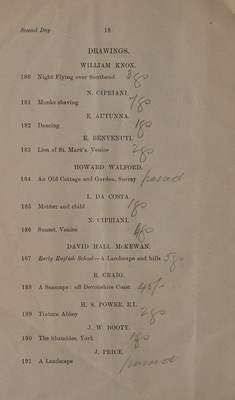 Second Day 18
DRAWINGS.
WILLIAM KNOX.
180 Night Flying over Southend 3gs
N. CIPRIANI
181 Monks shaving 7gs
E. AUTUNNA.
182 Dancing 1gs
E. BENVENUTI.
183 Lion of St. Mark's, Venice 2gs
HOWARD WALFORD.
184 An Old Cottage and Garden, Surrey passed
L. DA COSTA.
185 Mother and child 1gs
N. CIPRIANI.
186 Sunset, Venice gs
DAVID HALL McKEWAN.
187 Early English School—A Landscape and hills 5gs
R. CRAIG.
188 A Seascape: off Devonshire Coast 45/-
H. S. POWER, R.I.
189 Tintern Abbey 2gs
J. W. BOOTY.
190 The Shambles, York 1gs
J. PRICE.
191 A Landscape passed